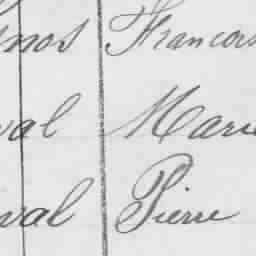 nos Francois
val Marie
val Pierre